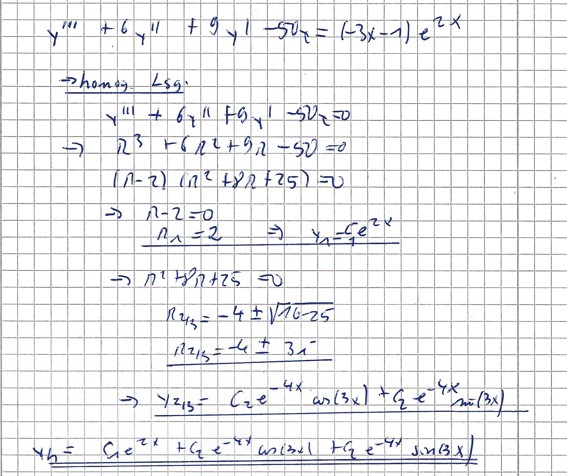 y''' + 6y'' + 9y' - 50y = (-3x-1) e^{2x}
→ homog. Lsg.
y''' + 6y'' + 9y' - 50y = 0
→ r³ + 6r² + 9r - 50 = 0
(r-2) (r² + 8r + 25) = 0
→ r-2 = 0
r₁ = 2 ⇒ y₁ = C₁e^{2x}
→ r² + 8r + 25 = 0
r_{2/3} = -4 ± √16-25
r_{2/3} = -4 ± 3i
→ y_{2/3} = C₂ e^{-4x} cos(3x) + C₂ e^{-4x} sin(3x)
y_h = C₁e^{2x} + C₂ e^{-4x} cos(3x) + C₂ e^{-4x} sin(3x)